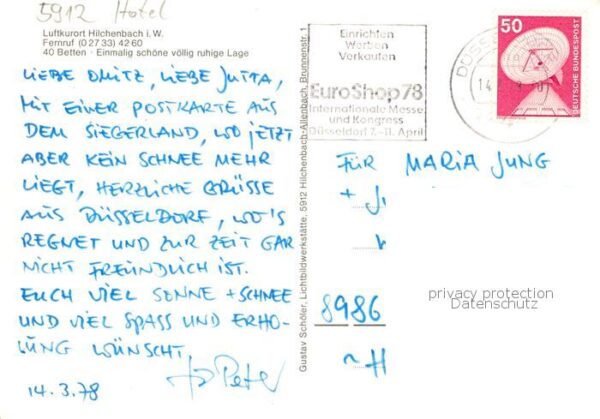 5912 Hotel
Luftkurort Hilchenbach i. W.
Fernruf (0 27 33) 42 60
40 Betten · Einmalig schöne völlig ruhige Lage
LIEBE LIEBE JUTTA,
MIT EINER POSTKARTE AUS
DEM SIEGERLAND, WO JETZT
ABER KEIN SCHNEE MEHR
LIEGT, HERZLICHE GRÜSSE
AUS DÜSSELDORF, WO'S
REGNET UND ZUR ZEIT GAR
NICHT FREUNDLICH IST.
EUCH VIEL SONNE + SCHNEE
UND VIEL SPASS UND ERHO-
LUNG WÜNSCHT
Peter
14.3.78
Gustav Schöler, Lichtbildwerkstätte, 5912 Hilchenbach-Allenbach, Brunnenstr. 1
Einrichten
Werben
Verkaufen
EuroShop 78
Internationale Messe
und Kongress
Düsseldorf 7.-11. April
DÜSS
14
50
DEUTSCHE BUNDESPOST
FÜR MARIA JUNG
+ J.
8986
privacy protection
Datenschutz
~H